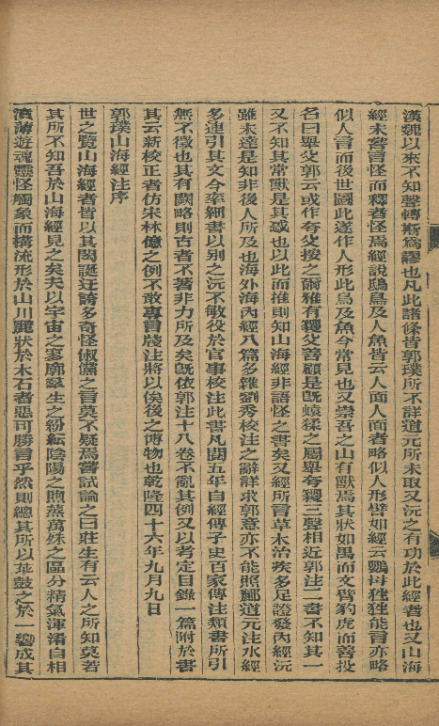 漢魏以來不知聲轉斯爲謬也凡此諸條皆郭璞所不詳道元所未取又沅之有功於此經者也又山海
經未嘗言怪而釋者怪焉經說鴟鳥及人魚皆云人面人面者略似人形譬如經云鸚母狌狌能言亦略
似人言而後世圖此遂作人形此鳥及魚今常見也又崇吾之山有獸焉其狀如禺而文臂豹虎而善投
名曰舉父郭云或作夸父按之爾雅有玃父善顧是旣猿猱之屬舉夸玃三聲相近郭注二書不知其一
又不知其常獸是其惑也以此而推則知山海經非語怪之書矣又經所言草木治疾多足證發內經沅
雖未達是知非後人所及也海外海內經八篇多雜劉秀校注之辭詳求郭意亦不能照酈道元注水經
多連引其文今率細書以別之沅不敏役於官事校注此書凡閱五年自經傳子史百家傳注類書所引
無不徵也其有闕略則古者不著非力所及矣旣依郭注十八卷不亂其例又以考定目錄一篇附於書
其云新校正者仿宋林億之例不敢專言牋注將以俟後之博物也乾隆四十六年九月九日
郭璞山海經注序
世之覽山海經者皆以其閎誕迂誇多奇怪俶儻之言莫不疑焉嘗試論之曰莊生有云人之所知莫若
其所不知吾於山海經見之矣夫以宇宙之寥廓羣生之紛紜陰陽之煦蒸萬殊之區分精氣渾淆自相
濆薄遊魂靈怪觸象而構流形於山川麗狀於木石者惡可勝言乎然則總其所以乖鼓之於一響成其